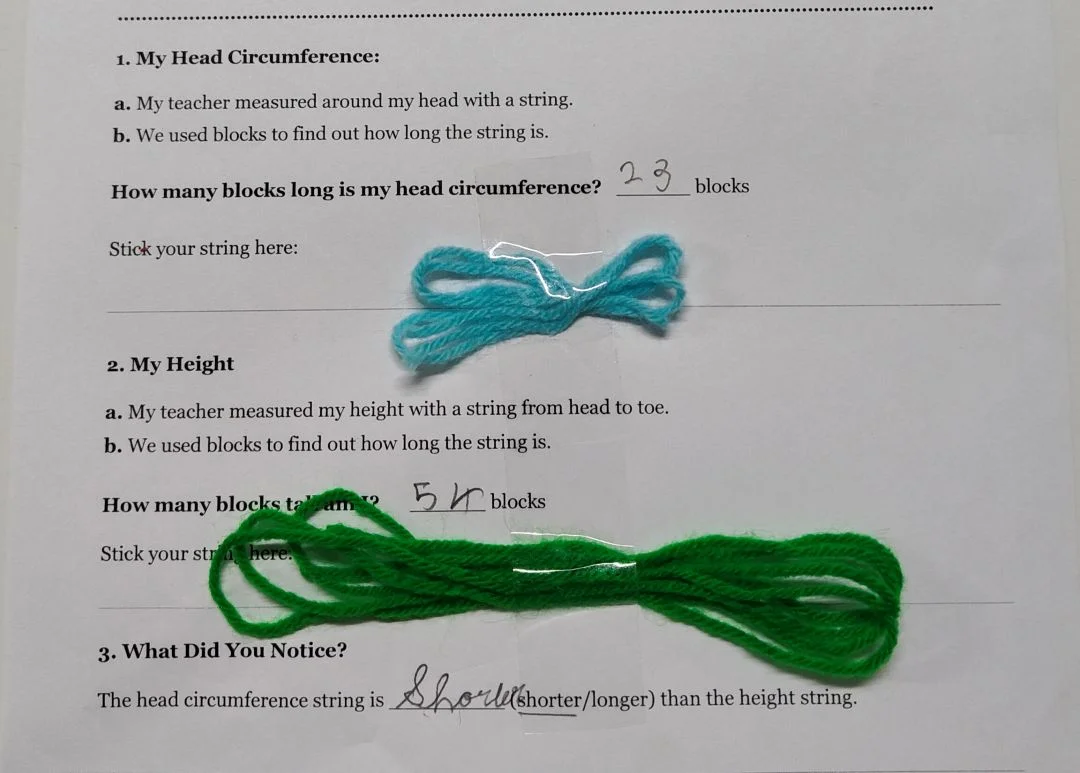 1. My Head Circumference:
a. My teacher measured around my head with a string.
b. We used blocks to find out how long the string is.
How many blocks long is my head circumference? 23 blocks
Stick your string here:
2. My Height
a. My teacher measured my height with a string from head to toe.
b. We used blocks to find out how long the string is.
How many blocks tall am I? 54 blocks
Stick your string here:
3. What Did You Notice?
The head circumference string is Shorter (shorter/longer) than the height string.